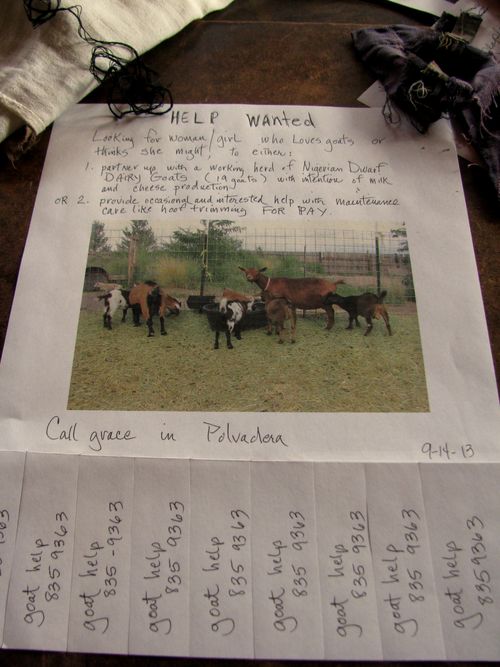 HELP Wanted
Looking for woman/girl who loves goats or
thinks she might, to either:
1. partner up with a working herd of Nigerian Dwarf
DAIRY Goats (19 goats) with intention of milk
and cheese production
OR 2. provide occasional and interested help with maintenance
care like hoof trimming FOR PAY.
Call grace in Polvadera
9-14-13
9363
goat help
835 9363
goat help
835-9363
goat help
835 9363
goat help
835 9363
goat help
835 9363
goat help
835 9363
goat help
835 9363
goat help
8359363